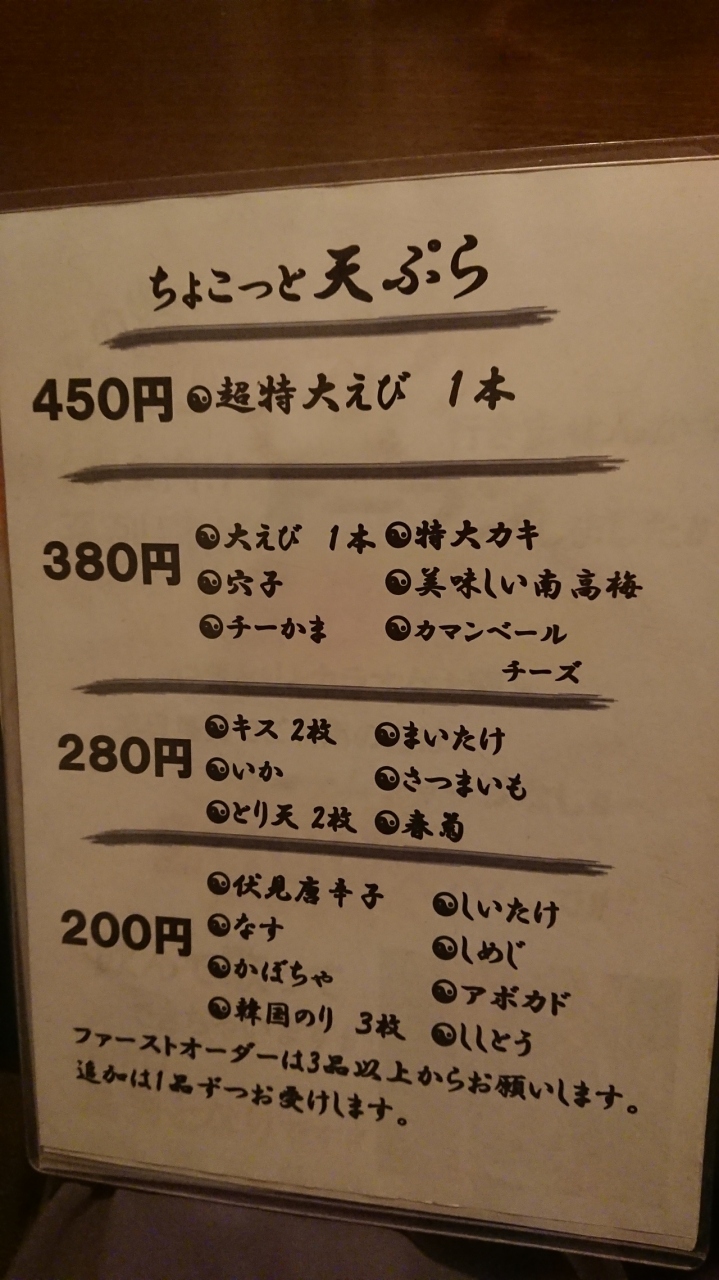 ちょこっと天ぷら
450円 超特大えび 1本
380円
大えび 1本
穴子
チーかま
特大カキ
美味しい南高梅
カマンベール
チーズ
280円
キス 2枚
いか
とり天 2枚
まいたけ
さつまいも
春菊
200円
伏見唐辛子
なす
かぼちゃ
韓国のり 3枚
しいたけ
しめじ
アボカド
ししとう
ファーストオーダーは3品以上からお願いします。
追加は1品ずつお受けします。